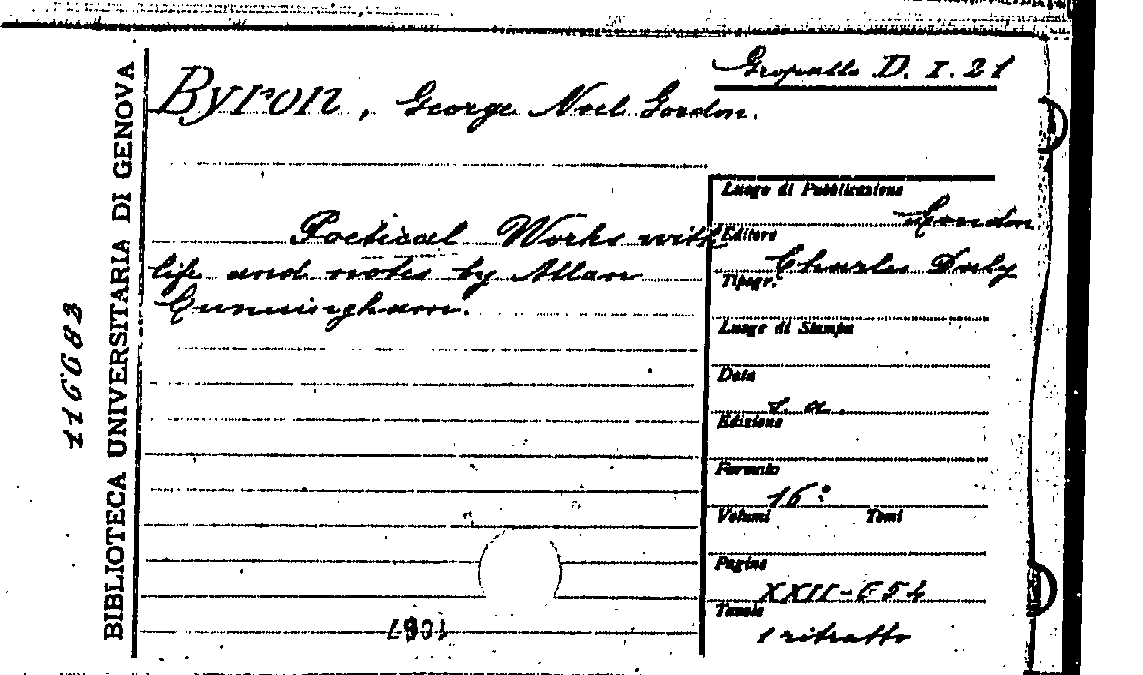 Gropallo D. I. 21
Byron, George Noel Gordon.
Poetical Works with
life and notes by Allan
Cunningham.
Luogo di Pubblicazione
London
Editore
Charles Daly
Tipogr.
Luogo di Stampa
Data
s. a.
Edizione
Formato
16°
Volumi Tomi
Pagine
XXII-654
Tavole
1 ritratto
BIBLIOTECA UNIVERSITARIA DI GENOVA
116683
1087